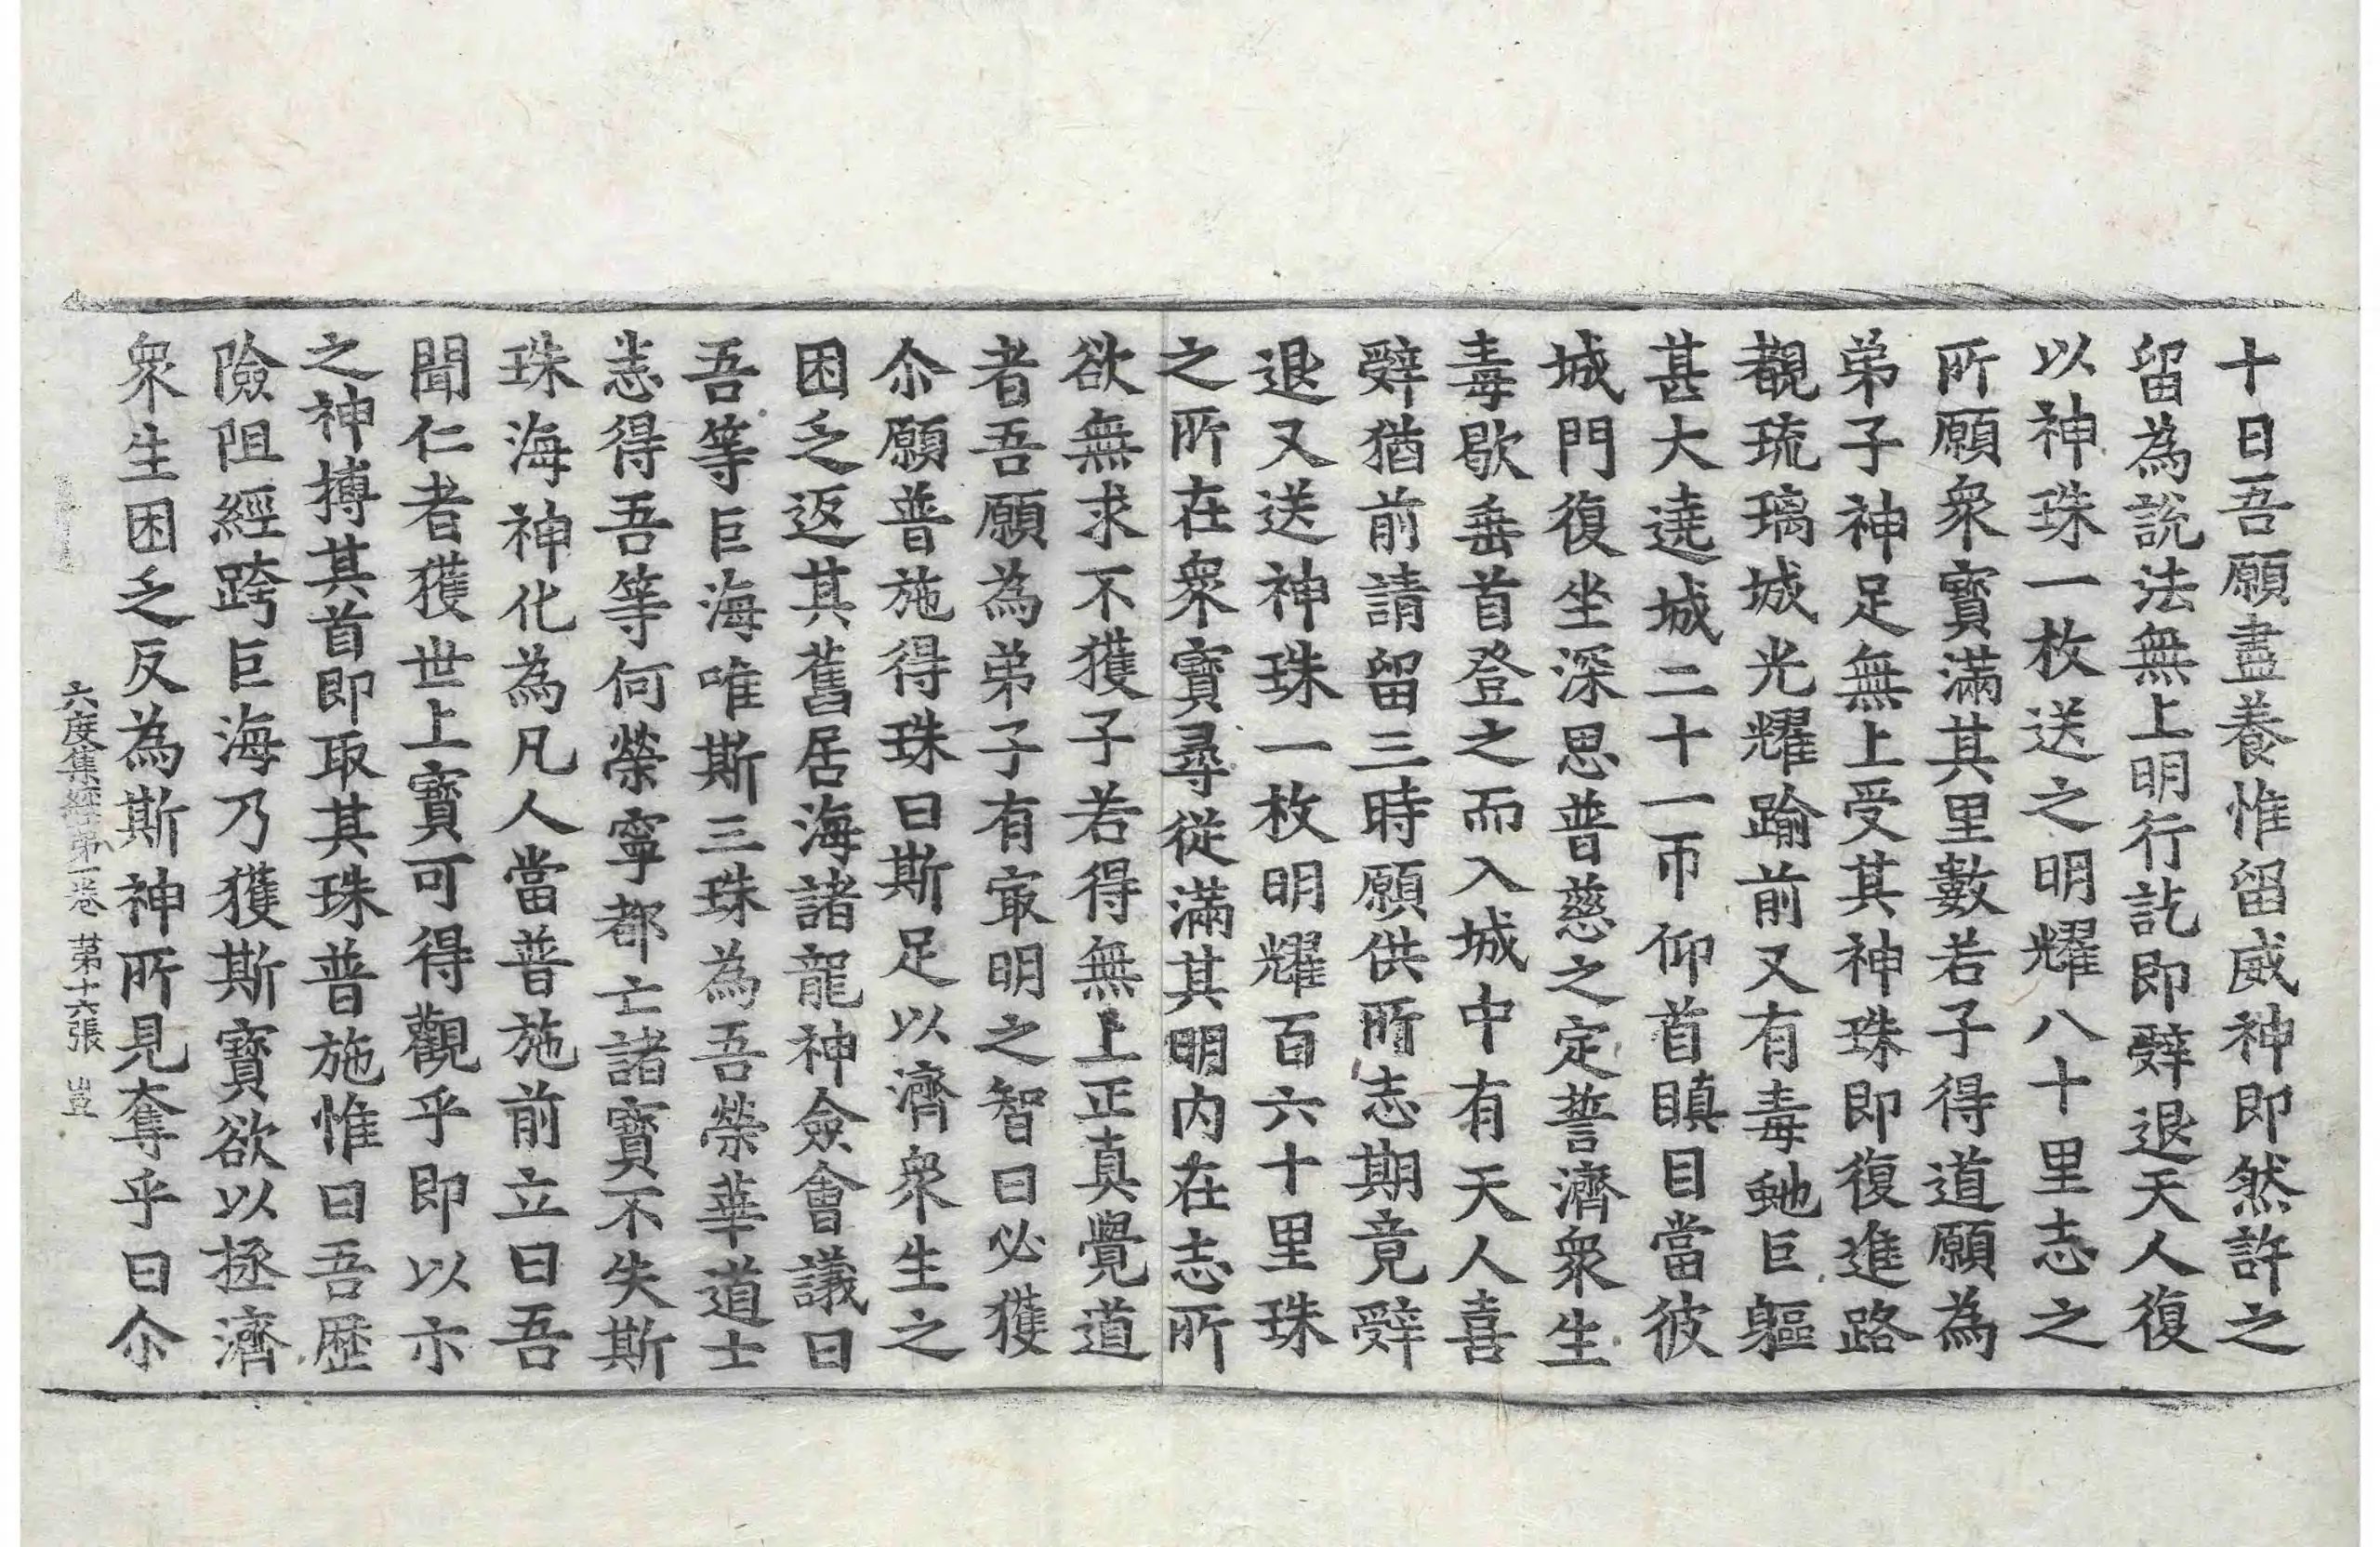 十日吾願盡養惟留威神即然許之
留為說法無上明行訖即辤退天人復
以神珠一枚送之明耀八十里志之
所願衆寶滿其里數若子得道願為
弟子神足無上受其神珠即復進路
覩琉璃城光耀踰前又有毒虵巨軀
甚大遶城二十一帀仰首瞋目當彼
城門復坐深思普慈之定誓濟衆生
毒歇垂首登之而入城中有天人喜
辤猶前請留三時願供所志期竟辤
退又送神珠一枚明耀百六十里珠
之所在衆寶尋從滿其明內在志所
欲無求不獲子若得無上正真覺道
者吾願為弟子有冣明之智曰必獲
尒願普施得珠曰斯足以濟衆生之
困乏返其舊居海諸龍神僉會議曰
吾等巨海唯斯三珠為吾榮華道士
悉得吾等何榮寧都亡諸寶不失斯
珠海神化為凡人當普施前立曰吾
聞仁者獲世上寶可得觀乎即以示
之神搏其首即取其珠普施惟曰吾歷
險阻經跨巨海乃獲斯寶欲以拯濟
衆生困乏反為斯神所見奪乎曰尒
六度集經第一卷 第十六張 豈